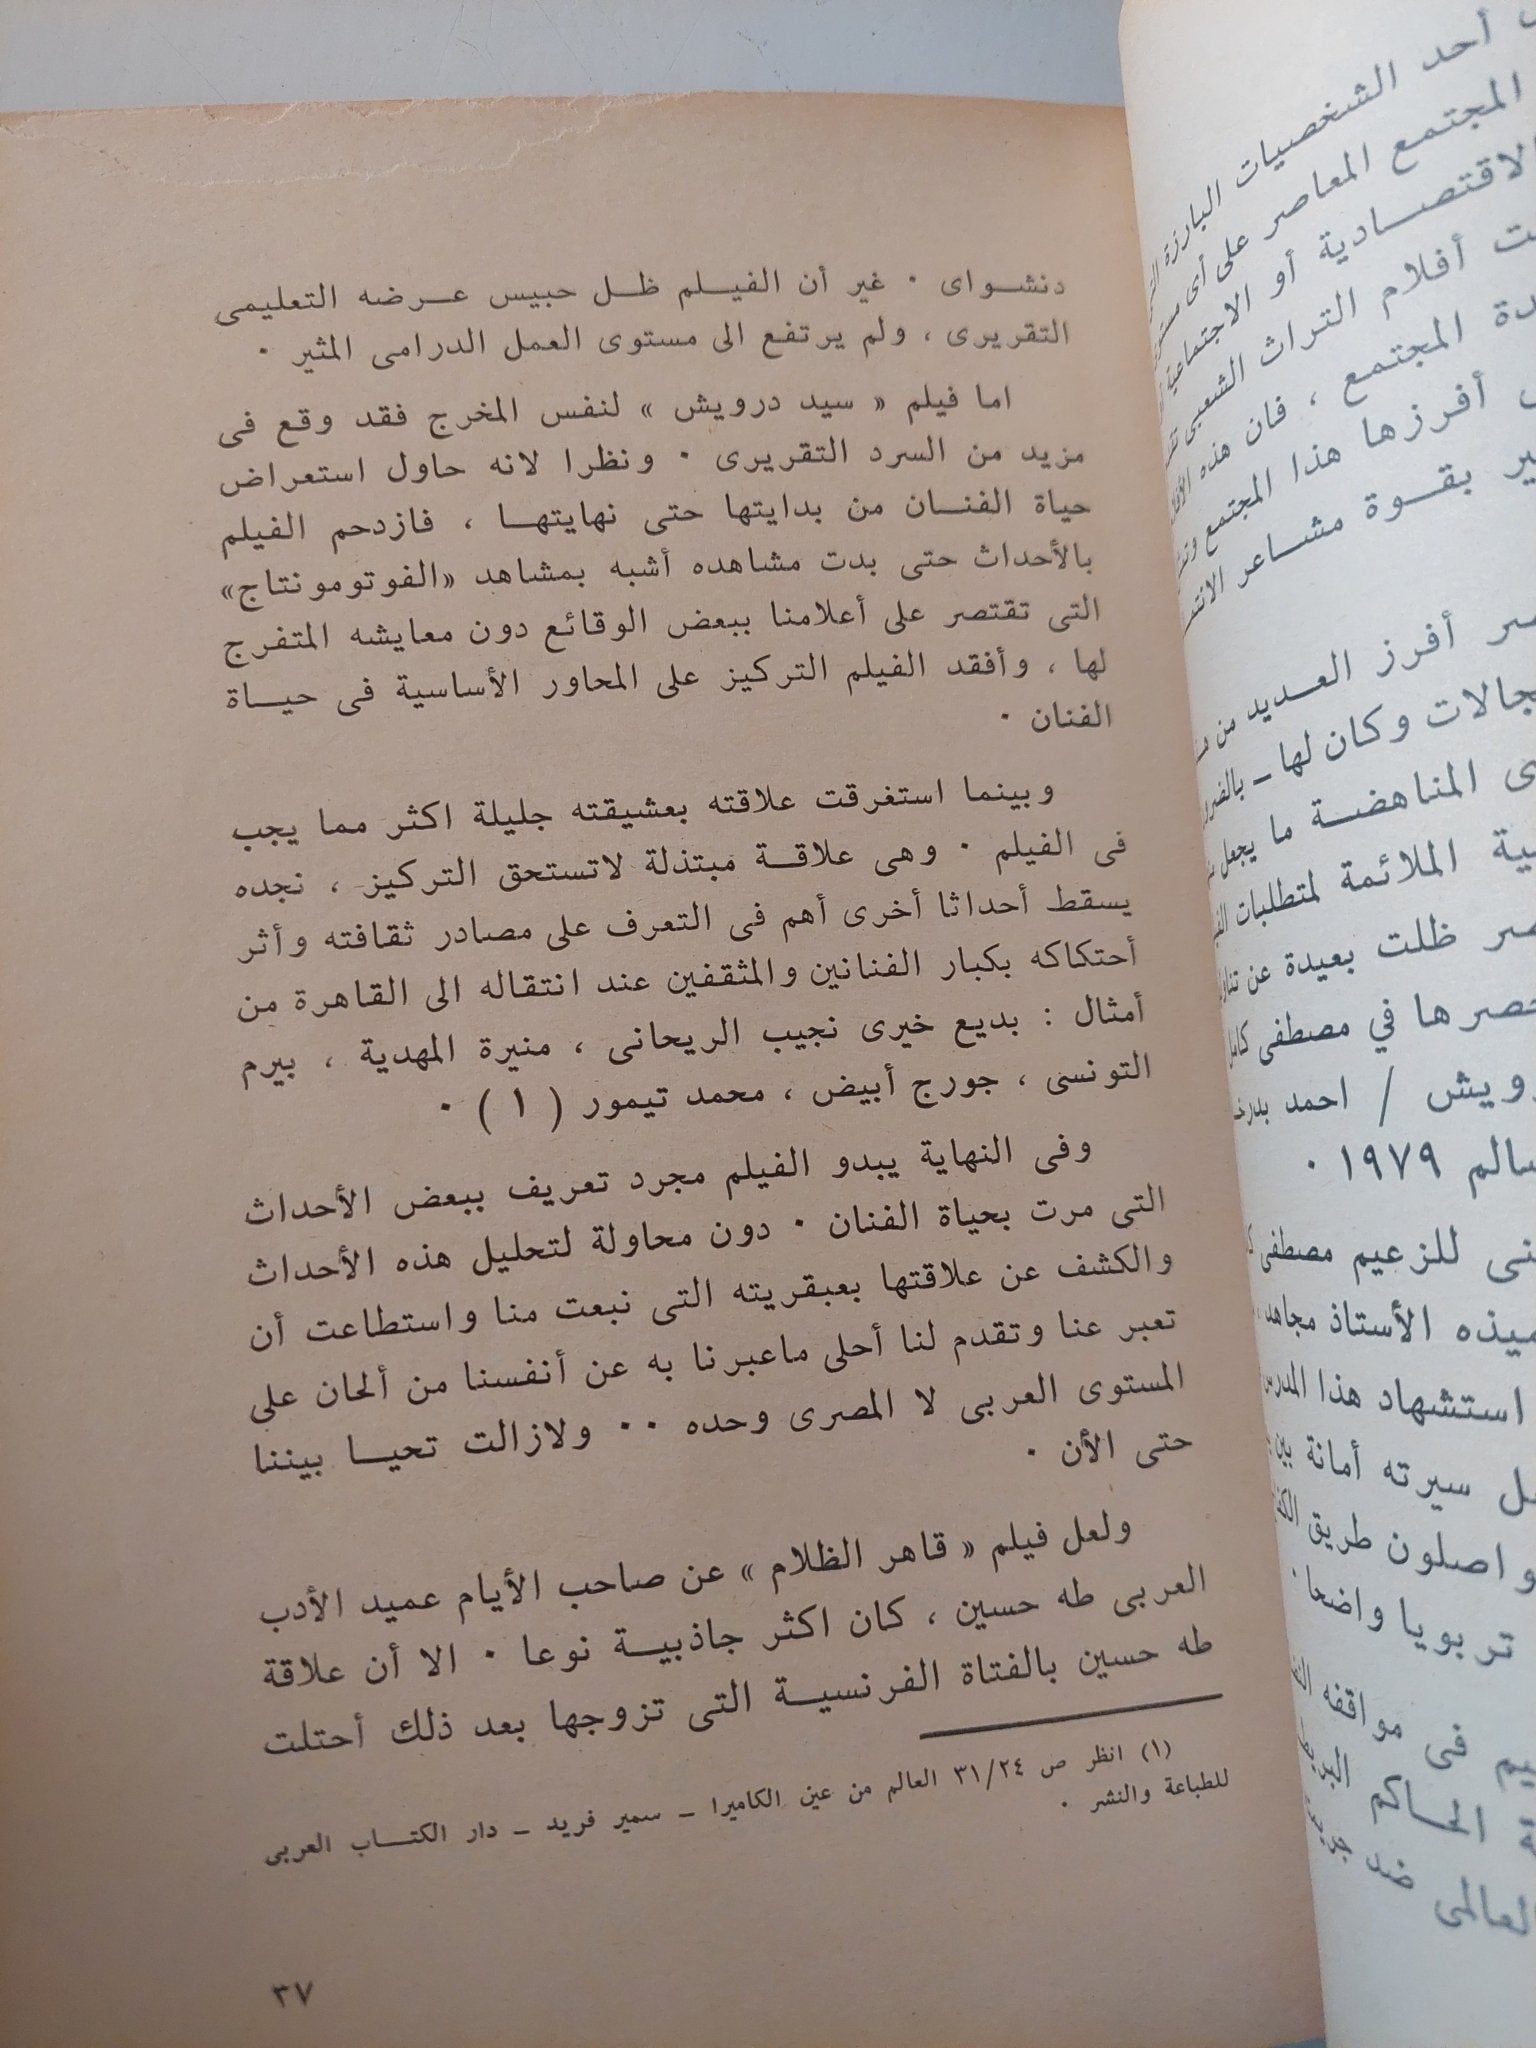 دنشـواى ٠ غير أن الفيـلم ظـل حبيس عـرضه التعليمى
التقريرى ، ولم يرتفع الى مستوى العمل الدرامى المثير ٠
اما فيلم « سيد درويش » لنفس المخرج فقد وقع فى
مزيد من السرد التقريرى ٠ ونظرا لانه حاول استعراض
حياة الفنـان من بدايتها حتى نهايتهـا ، فازدحم الفيلم
بالأحداث حتى بدت مشاهده أشبه بمشاهد «الفوتومونتاج»
التى تقتصر على أعلامنا ببعض الوقائع دون معايشه المتفرج
لها ، وأفقد الفيلم التركيز على المحاور الأساسية فى حيـاة
الفنان ٠
وبينما استغرقت علاقته بعشيقته جليلة اكثر مما يجب
فى الفيلم ٠ وهى علاقـة مبتذلة لاتستحق التركيز ، نجده
يسقط أحداثا أخرى أهم فى التعرف على مصادر ثقافته وأثر
أحتكاكه بكبار الفنانين والمثقفين عند انتقاله الى القاهرة من
أمثال : بديع خيرى نجيب الريحانى ، منيرة المهدية ، بيرم
التونسى ، جورج أبيض ، محمد تيمور ( ١ ) ٠
وفى النهاية يبدو الفيلم مجرد تعريف ببعض الأحداث
التى مرت بحياة الفنان ٠ دون محاولة لتحليل هذه الأحداث
والكشف عن علاقتها بعبقريته التى نبعت منا واستطاعت أن
تعبر عنا وتقدم لنا أحلى ماعبرنا به عن أنفسنا من ألحان على
المستوى العربى لا المصرى وحده ٠٠ ولازالت تحيـا بيننا
حتى الأن ٠
ولعل فيلم « قاهر الظلام » عن صاحب الأيام عميد الأدب
العربى طه حسين ، كان اكثر جاذبيـة نوعا ٠ الا أن علاقة
طه حسين بالفتاة الفرنسيـة التى تزوجها بعد ذلك أحتلت
(١) انظر ص ٣١/٢٤ العالم من عين الكاميرا ـ سمير فريد ـ دار الكتـاب العربى
للطباعة والنشر ٠
٣٧
أحد الشخصيات البارزة
المجتمع المعاصر على أى
الاقتصـادية أو الاجتماعية
أفلام التراث الشعبى
المجتمع ، فان هذه
أفرزها هذا المجتمع
بقـوة مشـاعر
أفرز العـديد من
وكان لها ـ
المناهضـة ما يجعل
الملائمة لمتطلبات
ظلت بعيدة عن
فى مصطفى كامل
/ احمد
سالم ١٩٧٩ ٠
للزعيم مصطفى
الأستاذ مجاهد
استشهاد هذا
سيرته أمانة بين
طريق
تربويا واضحا ٠
فى مواقفه
الحـاكم
ضد